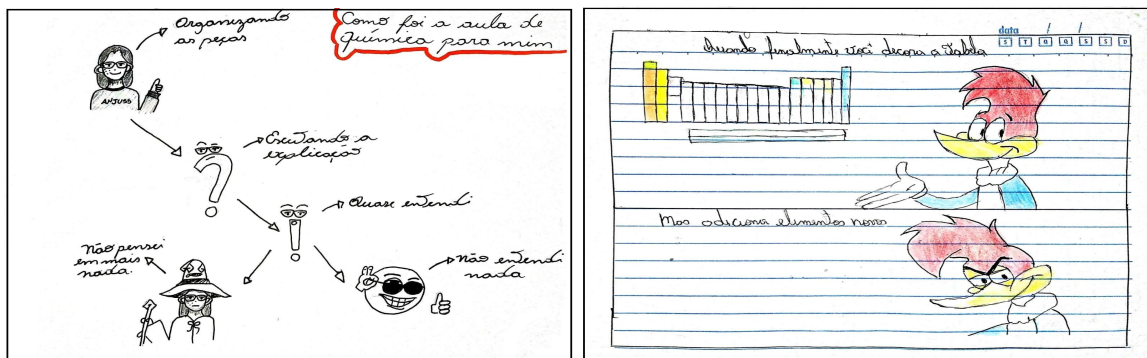 Como foi a aula de
química para mim
Organizando
as peças
ANJUSS
Escutando a
explicação
?
Quase entendi
!
Não pensei
em mais
nada.
não entendi
nada
data / /
S T Q Q S S D
Quando finalmente você decora a Tabela
Mas adiciona elementos novos